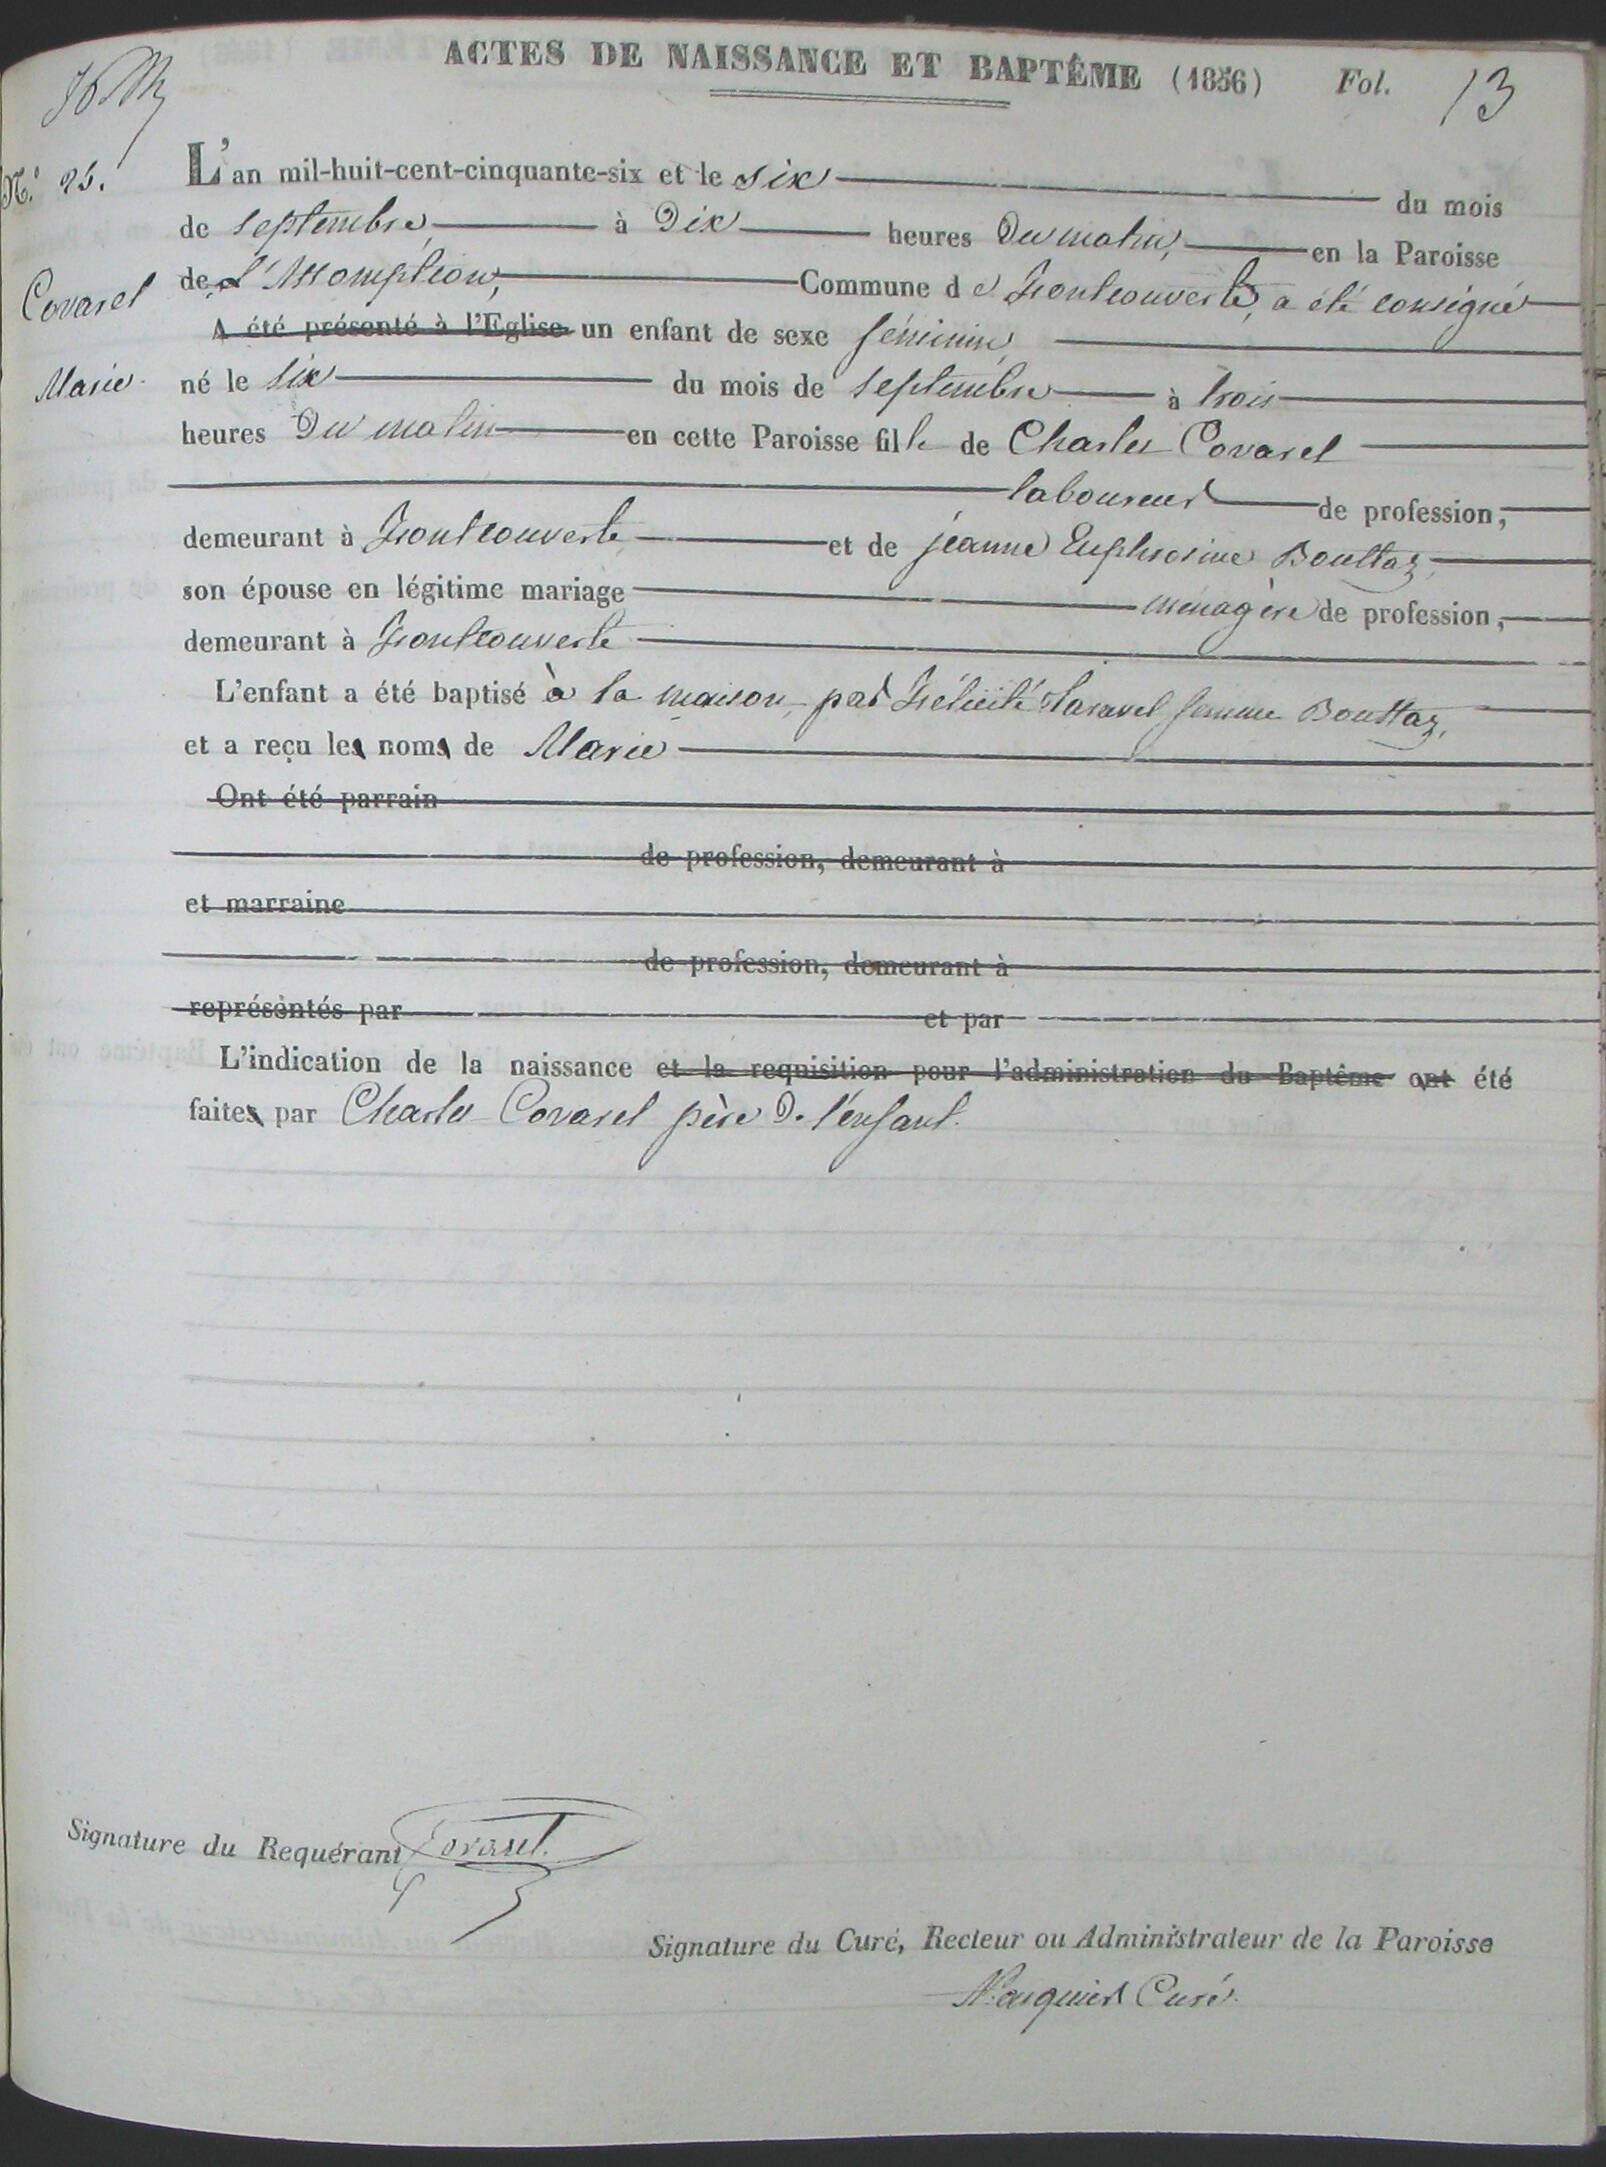 ACTES DE NAISSANCE ET BAPTÊME (1856) Fol. 13
N.° 25.
Covarel
Marie.
L'an mil-huit-cent-cinquante-six et le six du mois
de septembre à Dix heures Du matin, en la Paroisse
de l'Assomption, Commune de Fontcouverte, a été consigné
A été présenté à l'Eglise un enfant de sexe féminin,
né le six du mois de septembre à trois
heures Du matin en cette Paroisse fille de Charles Covarel
laboureur de profession,
demeurant à Fontcouverte et de jeanne Euphrosine Bouttaz,
son épouse en légitime mariage ménagère de profession,
demeurant à Fontcouverte
L'enfant a été baptisé à la maison, par Félicité femme Bouttaz,
et a reçu les noms de Marie
Ont été parrain
de profession, demeurant à
et marraine
de profession, demeurant à
représentés par et par
L'indication de la naissance et la requisition pour l'administration du Baptême ont été
faites par Charles Covarel père De l'enfant.
Signature du Requérant Covarel.
Signature du Curé, Recteur ou Administrateur de la Paroisse
Curé.